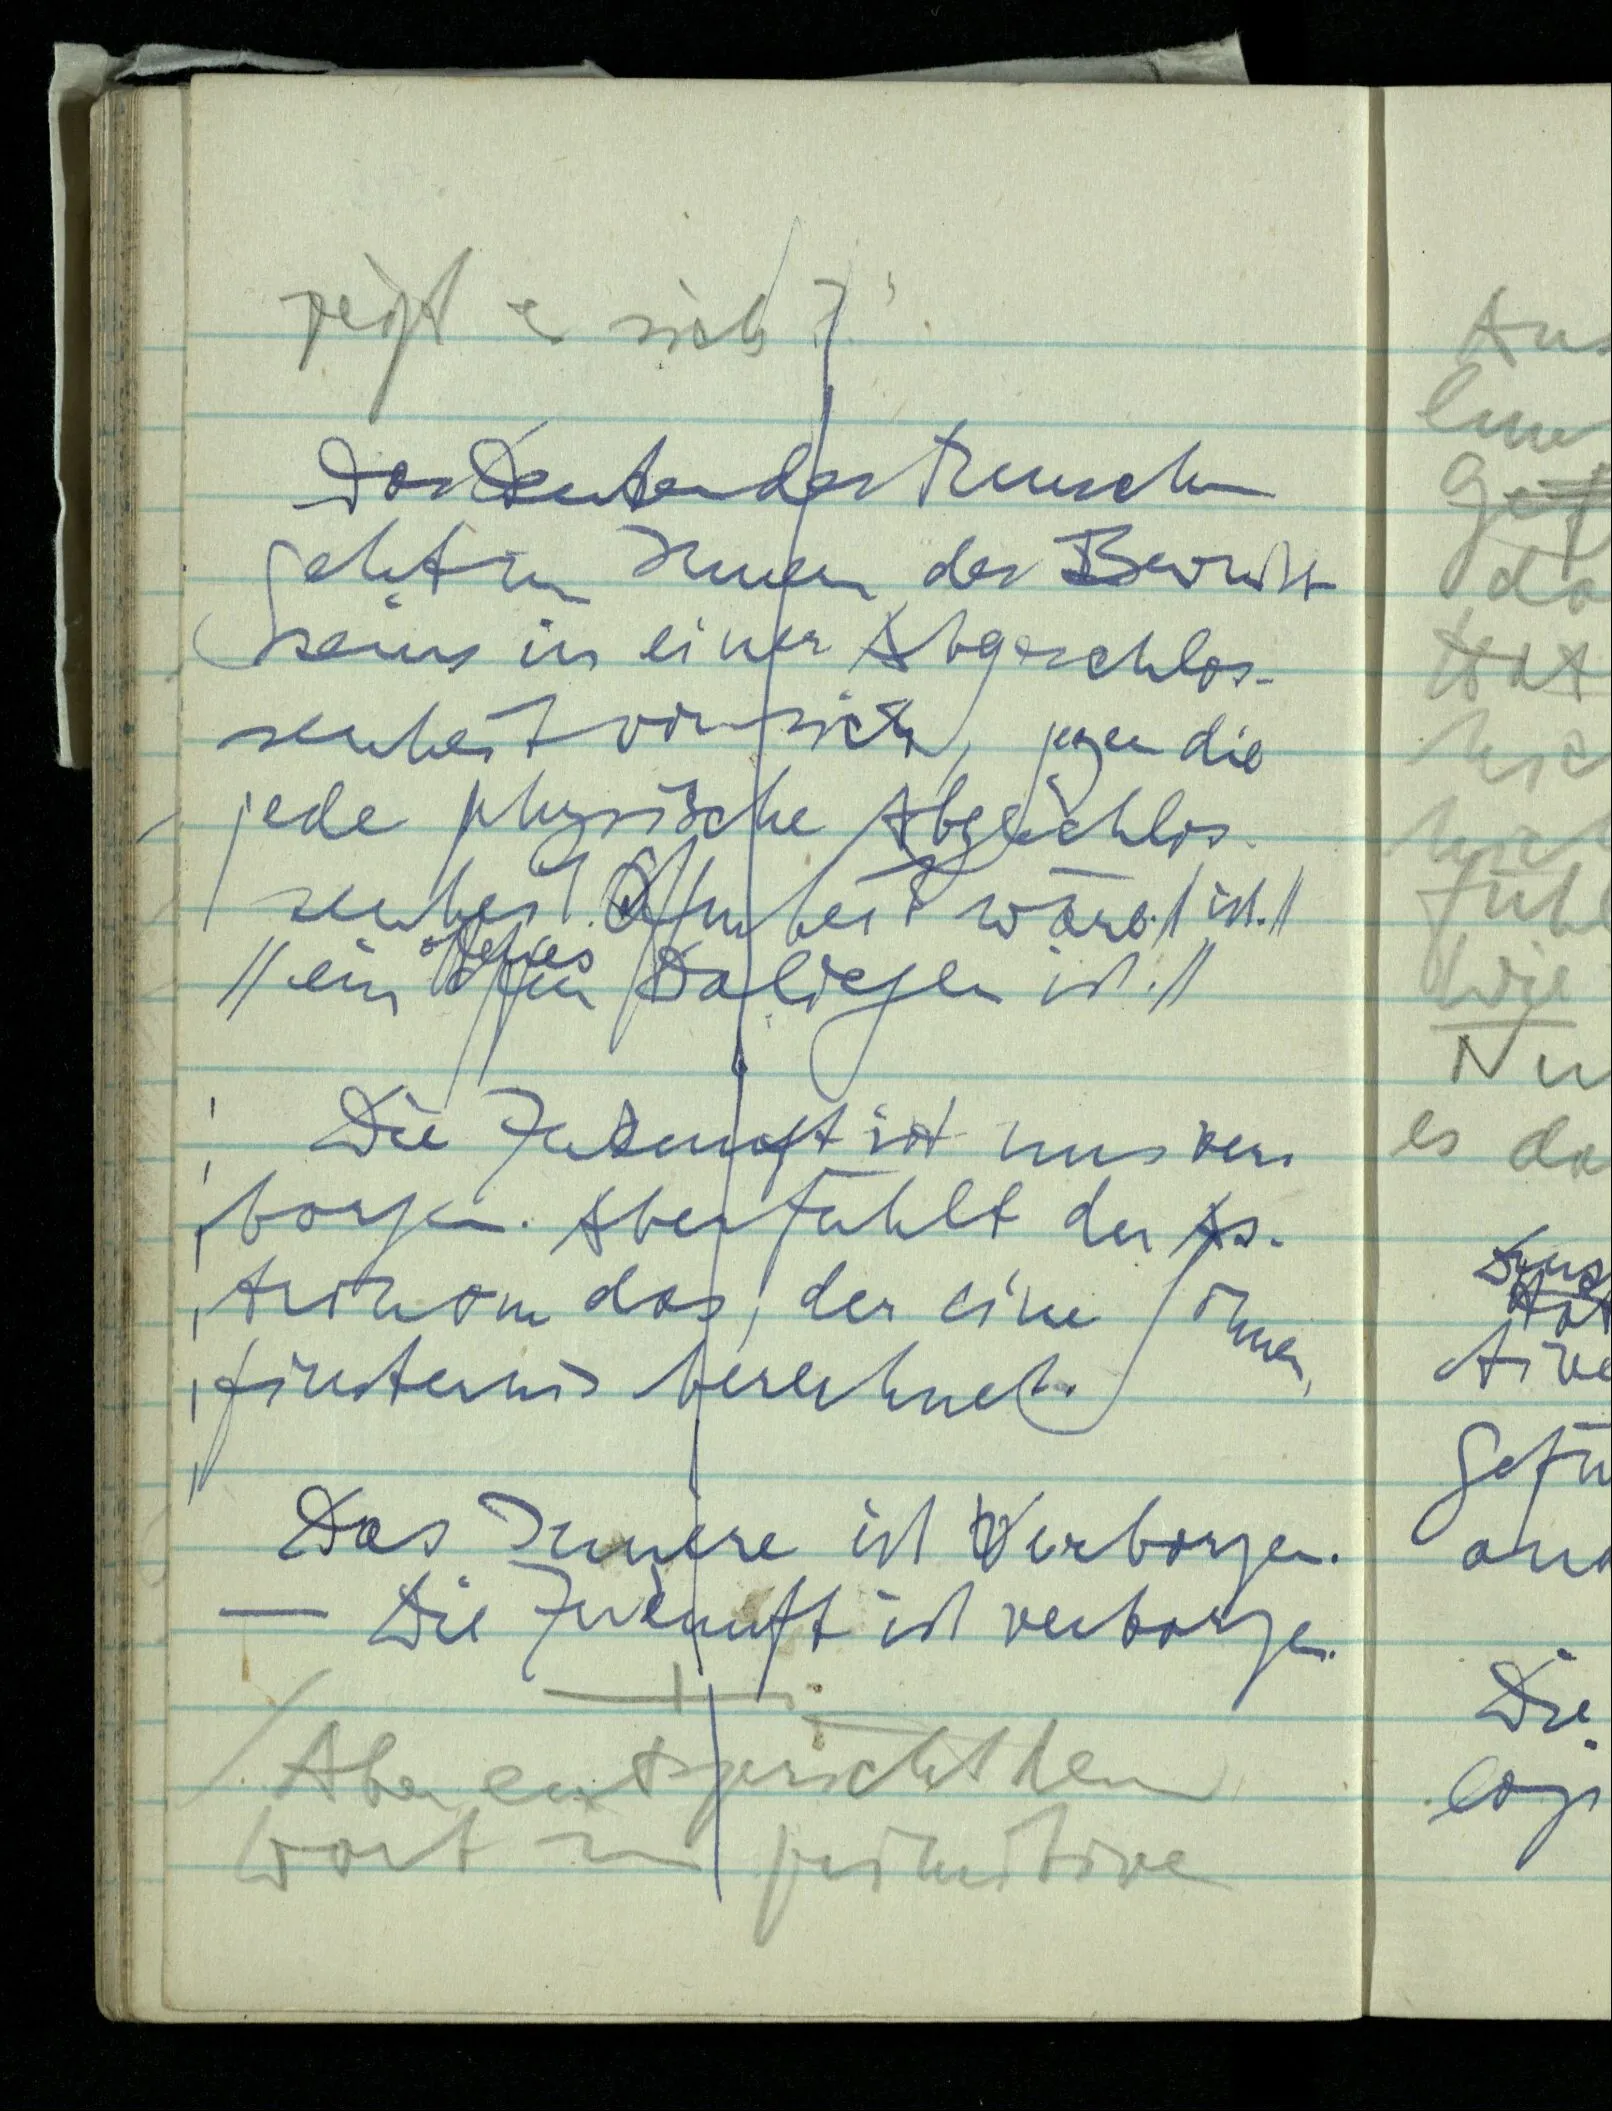 zeigt er sich?".
Das Denken des Menschen
geht im Innern des Bewußt-
seins in einer Abgeschlos-
senheit vor sich, gegen die
jede physische Abgeschlos-
senheit Offenheit wäre. / ist. //
// ein offenes Daliegen ist. //
Die Zukunft ist uns ver-
borgen. Aber fühlt der As-
tronom das, der eine Sonnen-
finsternis berechnet.
Das Innere ist Verborgen.
— Die Zukunft ist verborgen.
Aber entspricht dem
Wort im primitive
Aus
da
Wie
Nu
es da
tive
Gefü
and
Die
Logi